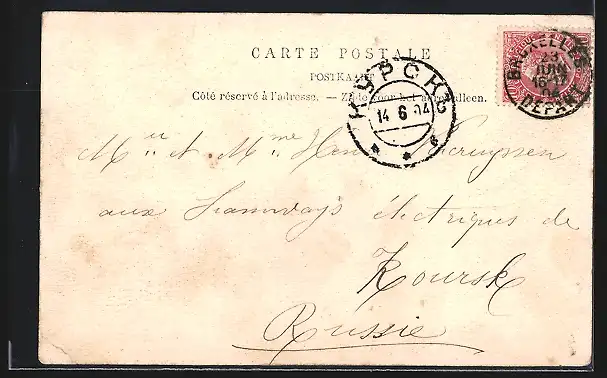 CARTE POSTALE
POSTKAART
Côté réservé à l'adresse. — Zijde voor het adres alleen.
BRUXELLES
23
JUIN
1904
DÉPART
КУРСКЪ
14 6 04
Mr et Mme
aux Tramways électriques de
Koursk
Russie